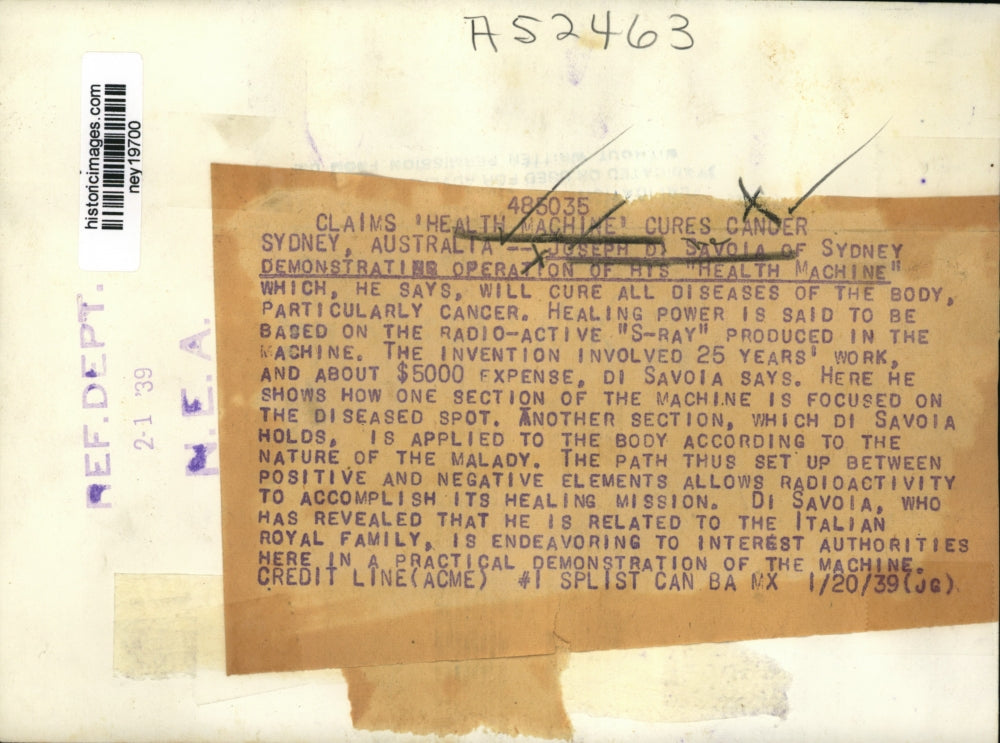 A52463
historicimages.com
ney19700
REF.DEPT.
2-1 '39
N.E.A.
485035
CLAIMS 'HEALTH MACHINE' CURES CANCER
SYDNEY, AUSTRALIA -- JOSEPH DI SAVOIA OF SYDNEY
DEMONSTRATING OPERATION OF HIS "HEALTH MACHINE"
WHICH, HE SAYS, WILL CURE ALL DISEASES OF THE BODY,
PARTICULARLY CANCER. HEALING POWER IS SAID TO BE
BASED ON THE RADIO-ACTIVE "S-RAY" PRODUCED IN THE
MACHINE. THE INVENTION INVOLVED 25 YEARS' WORK,
AND ABOUT $5000 EXPENSE, DI SAVOIA SAYS. HERE HE
SHOWS HOW ONE SECTION OF THE MACHINE IS FOCUSED ON
THE DISEASED SPOT. ANOTHER SECTION, WHICH DI SAVOIA
HOLDS, IS APPLIED TO THE BODY ACCORDING TO THE
NATURE OF THE MALADY. THE PATH THUS SET UP BETWEEN
POSITIVE AND NEGATIVE ELEMENTS ALLOWS RADIOACTIVITY
TO ACCOMPLISH ITS HEALING MISSION. DI SAVOIA, WHO
HAS REVEALED THAT HE IS RELATED TO THE ITALIAN
ROYAL FAMILY, IS ENDEAVORING TO INTEREST AUTHORITIES
HERE IN A PRACTICAL DEMONSTRATION OF THE MACHINE.
CREDIT LINE(ACME) #1 SPLIST CAN BA MX 1/20/39(JG)